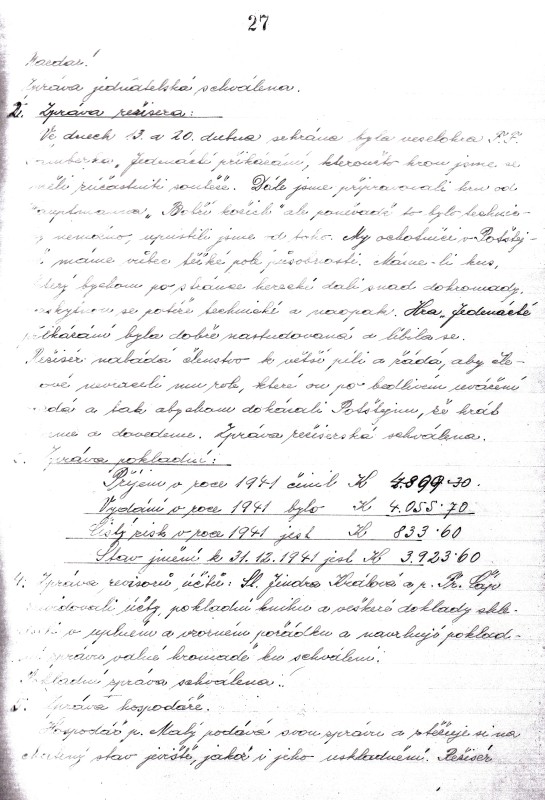 27
Nazdar!
Zpráva jednatelská schválena.
2. Zpráva režisera:
Ve dnech 13. a 20. dubna sehrána byla veselohra F. F.
Šamberka „Jedenácté přikázání, kteroužto hrou jsme se
měli zúčastniti soutěže. Dále jsme připravovali hru od
Hauptmanna „Bobří kožich" ale poněvadž to bylo technic-
ky nemožno, upustili jsme od toho. My ochotníci v Potštej-
ně máme vůbec těžké pole působnosti. Máme-li kus,
který bychom po stránce herecké dali snad dohromady,
vyskytnou se potíže technické a naopak. Hra „Jedenácté
přikázání byla dobře nastudovaná a líbila se.
Režisér nabádá členstvo k větší píli a řádu, aby čle-
nové nevraceli mu role, které on po bedlivém uvážení
rozdá a tak abychom dokázali Potštejnu, že hrát
umíme a dovedeme. Zpráva režiserská schválena.
Zpráva pokladní:
Příjem v roce 1941 činil K 4.899.30.
Vydání v roce 1941 bylo K 4.055.70
Čistý zisk v roce 1941 jest K 833.60
Stav jmění k 31.12.1941 jest K 3.923.60
4. Zpráva revisorů účtů: Sl. Jindra Králová a p. Fr.
revidovali účty, pokladní knihu a veškeré doklady shle-
dali v úplném a vzorném pořádku a navrhují poklad-
ní zprávu valné hromadě ku schválení.
Pokladní zpráva schválena.
5. Zpráva hospodáře.
Hospodář p. Malý podává svou zprávu a stěžuje si na
stav jeviště, jakož i jeho uskladnění. Režisér